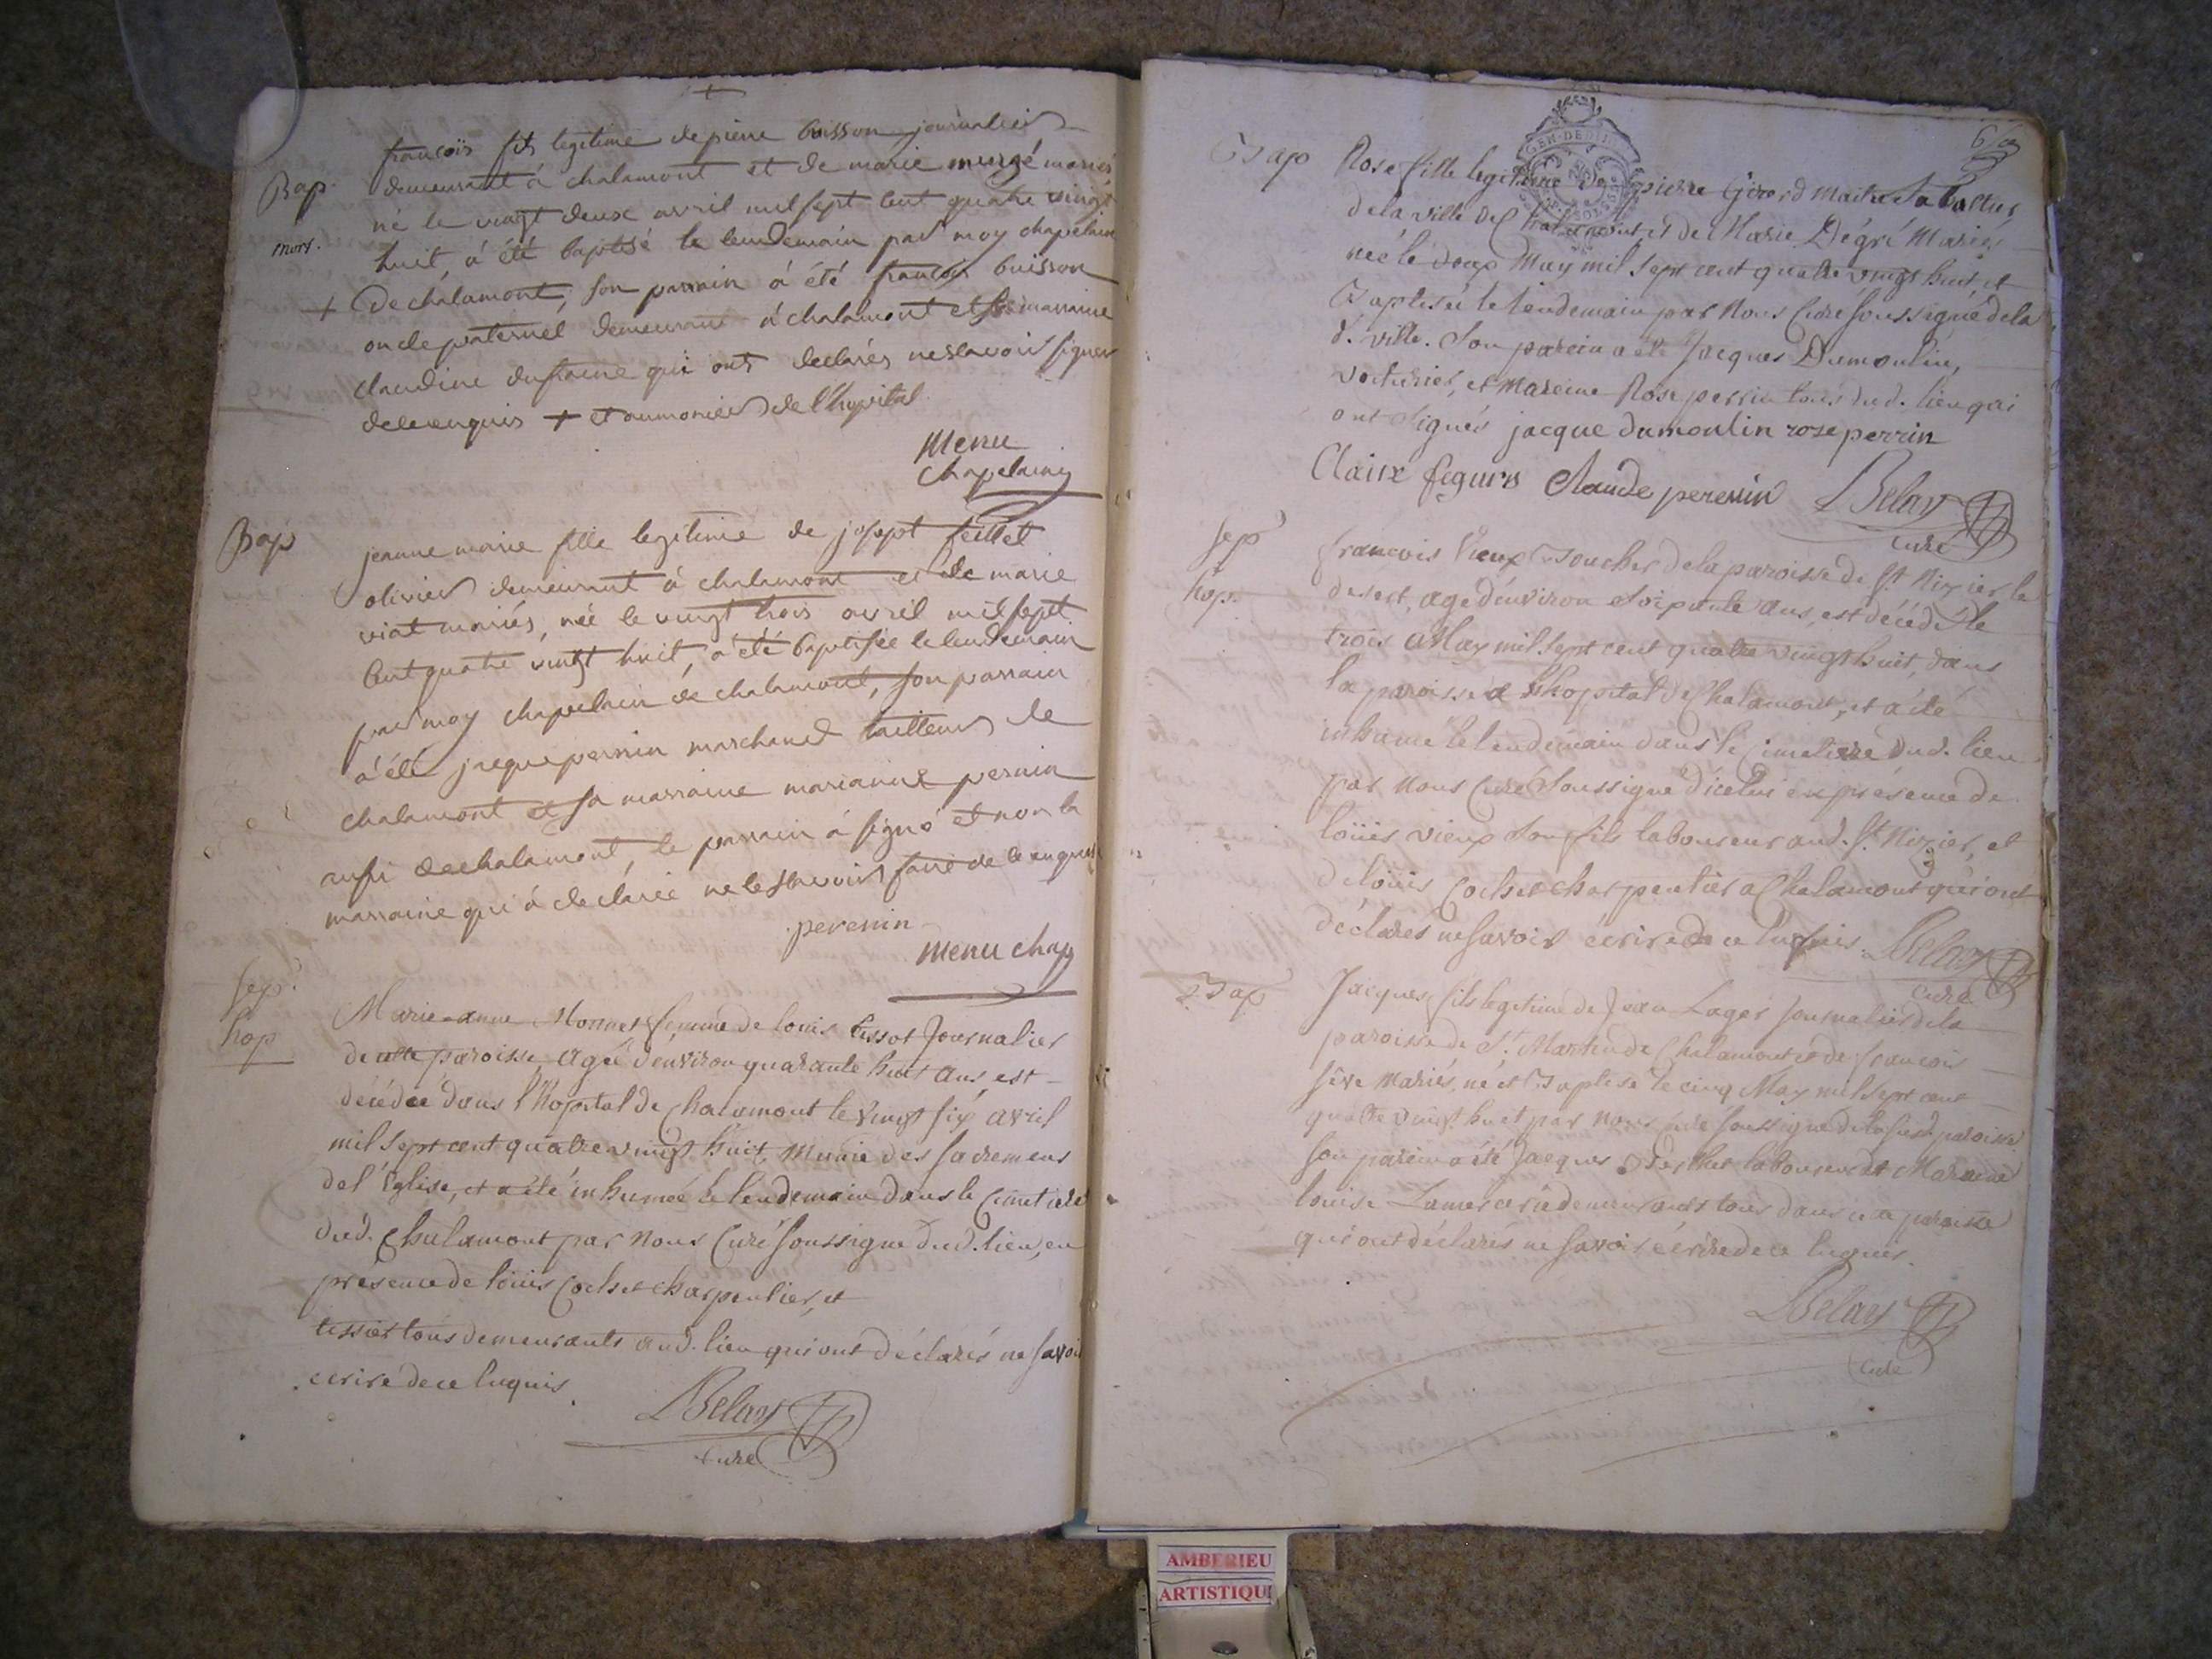 Bap.
mort.
françois fils legitime de pierre buisson journalier
demeurant à chalamont et de marie mariés
né le vingt deux avril mil sept cent quatre vingt
huit, à été baptisé le lendemain par moy chapelain
+ de chalamont, son parrain à été françois buisson
oncle paternel demeurant à chalamont et sa marraine
claudine dufraine qui ont declarés ne sçavoir signer
de ce enquis + et aumonier de l'hopital.
Menu
chapelain
Bap
jeanne marie fille legitime de josept feillet
olivier demeurant à chalamont et de marie
viat mariés, née le vingt trois avril mil sept
Cent quatre vingt huit, à été baptisée le lendemain
par moy chapelain de chalamont, son parrain
à été jaque pernin marchand tailleur de
chalamont et sa marraine marianne pernin
aussi de chalamont, le parrain à signé et non la
marraine qui à declarée ne le sçavoir faire de ce enquis
perenin
Menu chap
sep.
hop
Marie-anne Monnet femme de louis tissot Journalier
de cette paroisse, agée d'environ quarante huit ans, est
décédée dans l'hopital de Chalamont le vingt six avril
mil sept cent quatre vingt huit, Munie des sacremens
de l'Eglise, et a été inhumée le lendemain dans le Cimetiere
dud. Chalamont par nous Curé soussigné dud. lieu, en
présence de loüis Cochet charpentier, et
tissier tous demeurants aud. lieu qui ont déclarés ne savoir
ecrire de ce Enquis.
LBelay
curé
Bap
Rose fille legitime de pierre Girord Maitre
de la ville de Chalamont, et de Marie Dégré Mariés
née le deux May mil sept cent quatre vingt huit, et
Baptisée le lendemain par Nous Curé soussigné de la
d. ville. Son parain a été Jacques Dumoulin,
voiturier, et Maraine Rose perrin tous dud. lieu qui
ont signés jacque dumoulin rose perrin
Claire figurs Claude perenin LBelay
curé
sep
hop.
francois Vieux de la paroisse de St. Nizier le
desert, agé d'environ soixante ans, est décédé le
trois May mil sept cent quatre vingt huit, dans
la paroisse et l'hopital de Chalamont, et a été
inhumé le lendemain dans le Cimetiere dud. lieu
par Nous Curé Soussigné d'icelui en présence de
loüis vieux son fils laboureur aud. St. Nizier, et
de loüis Cochet charpentier a Chalamont qui ont
déclarés ne savoir écrire de ce Enquis. LBelay
curé
Bap
Jacques fils legitime de Jean Lager journalier de la
paroisse de St. Martin de Chalamont et de francoise
sève Mariés, né et Baptisé le cinq May mil sept cent
quatre vingt huit par Nous Curé soussigné de la susd. paroisse
son parain a été Jacques laboureur et Maraine
louise demeurants tous dans cette paroisse
qui ont déclarés ne savoir écrire de ce Enquis.
LBelay
curé
AMBERIEU
ARTISTIQU